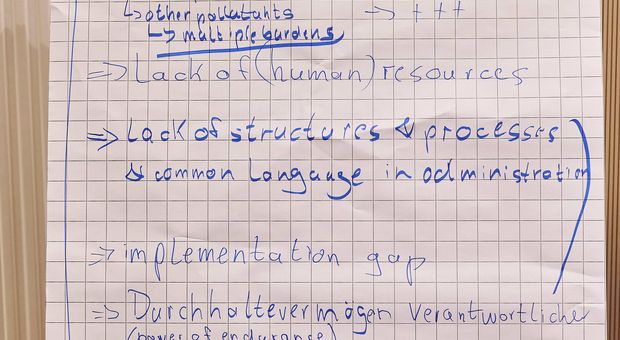 ↳ other pollutants → + + +
↳ multiple burdens
⇒ Lack of (human) resources
⇒ Lack of structures & processes
& common Langauge in administration
⇒ implementation gap
⇒ Durchhaltevermögen Verantwortlicher
(power of endurance)